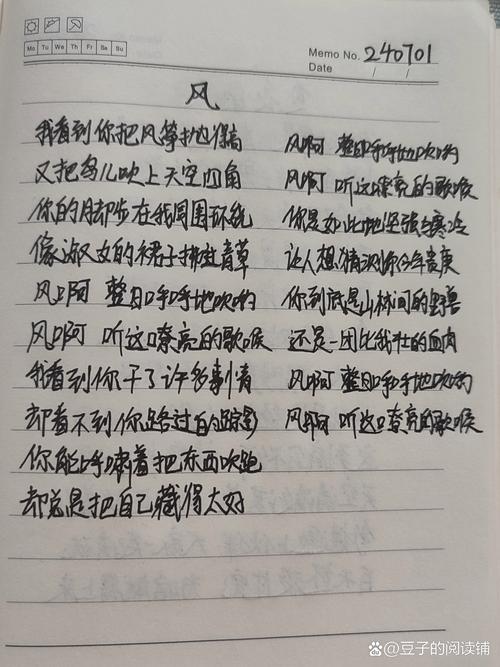 Mo Tu We Th Fr Sa Su
Memo No. 240701
Date / /
风
我看到你把风筝抛得高
又把鸟儿吹上天空四角
你的月却步在我周围环绕
像淑女的裙子拂过青草
风啊 整日呼呼地吹哟
风啊 听这嘹亮的歌喉
我看到你干了许多事情
却看不到你路过的踪影
你能呼啸着把东西吹跑
却总是把自己藏得太好
风啊 整日呼呼地吹哟
风啊 听这嘹亮的歌喉
你是如此地坚强与寒冷
让人想猜测你今年贵庚
你到底是山林间的野兽
还是一团比我壮的血肉
风啊 整日呼呼地吹哟
风啊 听这嘹亮的歌喉
百家号@豆子的阅读铺